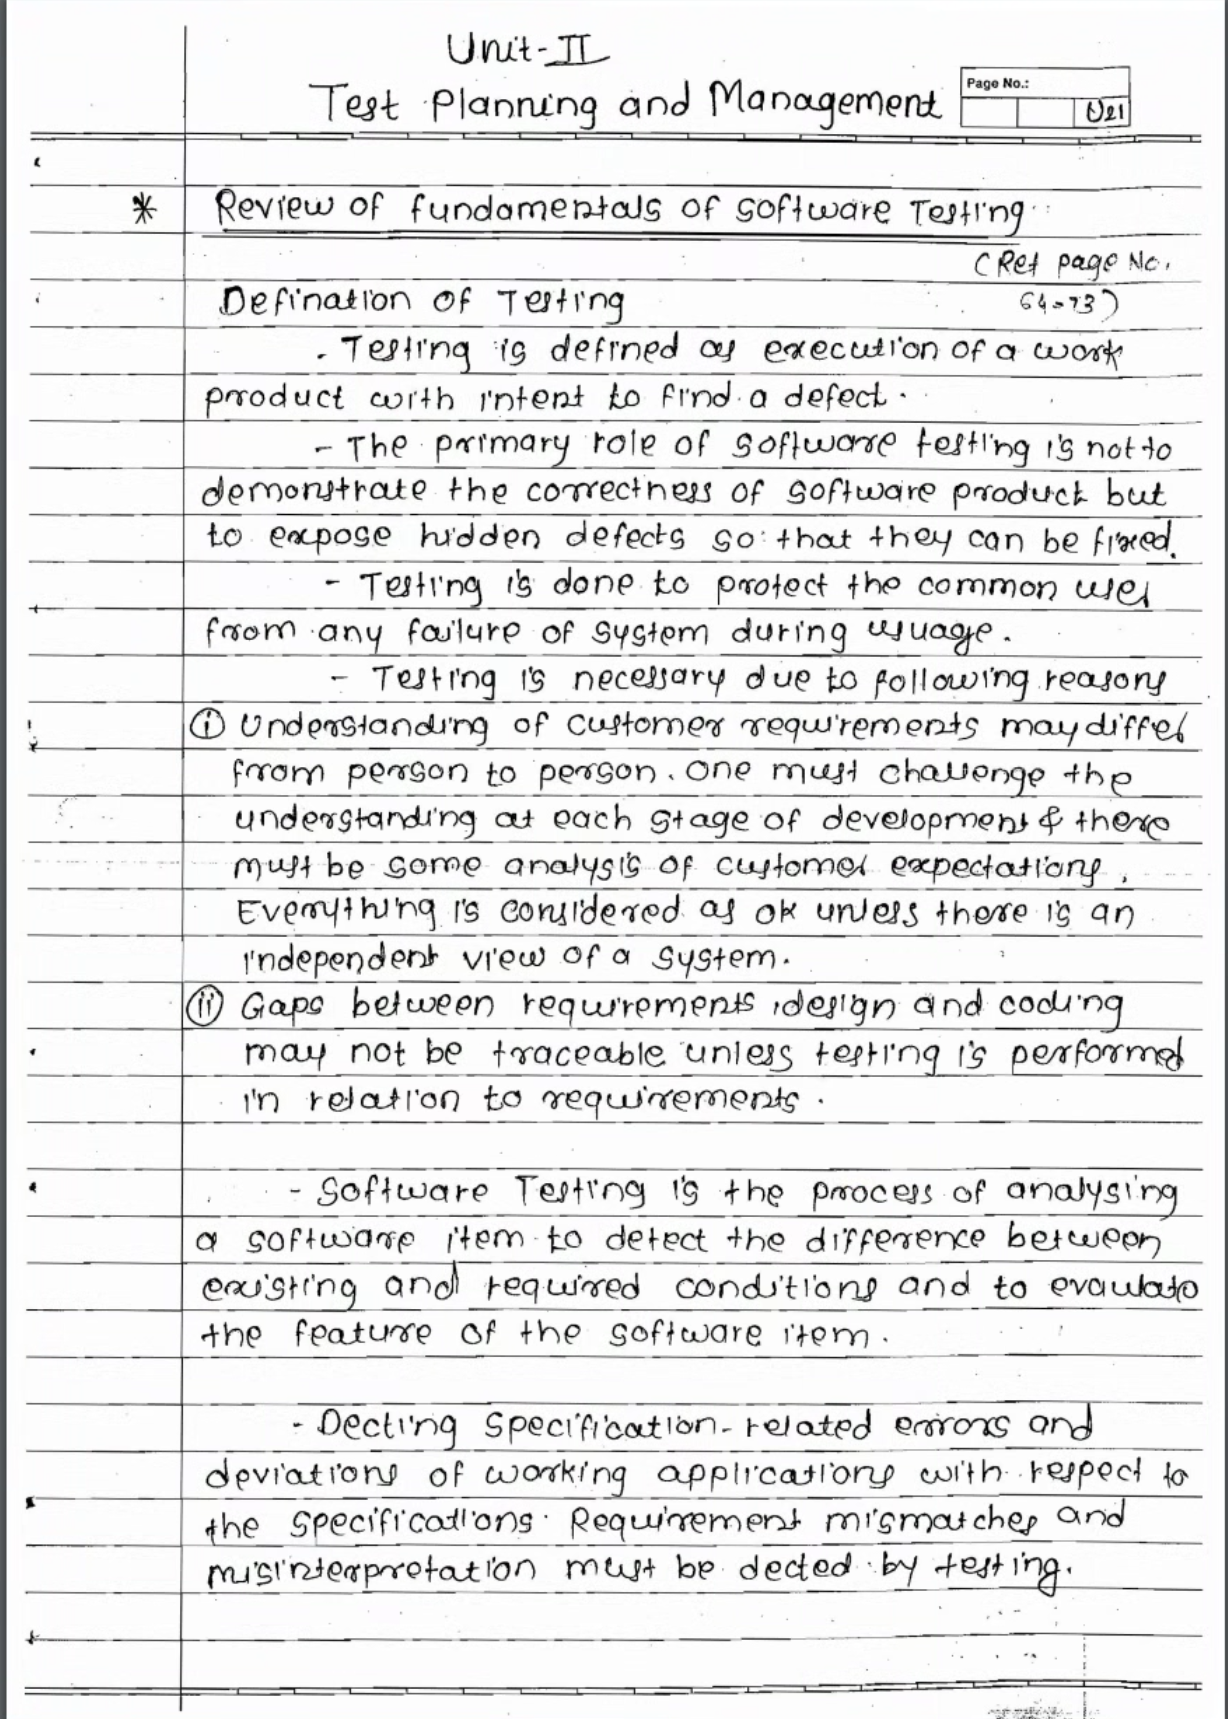 Unit-II
Test Planning and Management
Page No.:
U21
* Review of fundamentals of software Testing
(Ref page No.
64-73)
Defination of Testing
- Testing is defined as execution of a work
product with intent to find a defect.
- The primary role of software testing is not to
demonstrate the correctness of software product but
to expose hidden defects so that they can be fixed.
- Testing is done to protect the common user
from any failure of system during usuage.
- Testing is necessary due to following reasons
(i) Understanding of customer requirements may differ
from person to person. One must challenge the
understanding at each stage of development & there
must be some analysis of customer expectations.
Everything is considered as ok unless there is an
independent view of a system.
(ii) Gaps between requirements, design and coding
may not be traceable unless testing is performed
in relation to requirements.
- Software Testing is the process of analysing
a software item to detect the difference between
existing and required conditions and to evaulate
the feature of the software item.
- Decting specification-related errors and
deviations of working applications with respect to
the specifications. Requirement mismatches and
misinterpretation must be dected by testing.